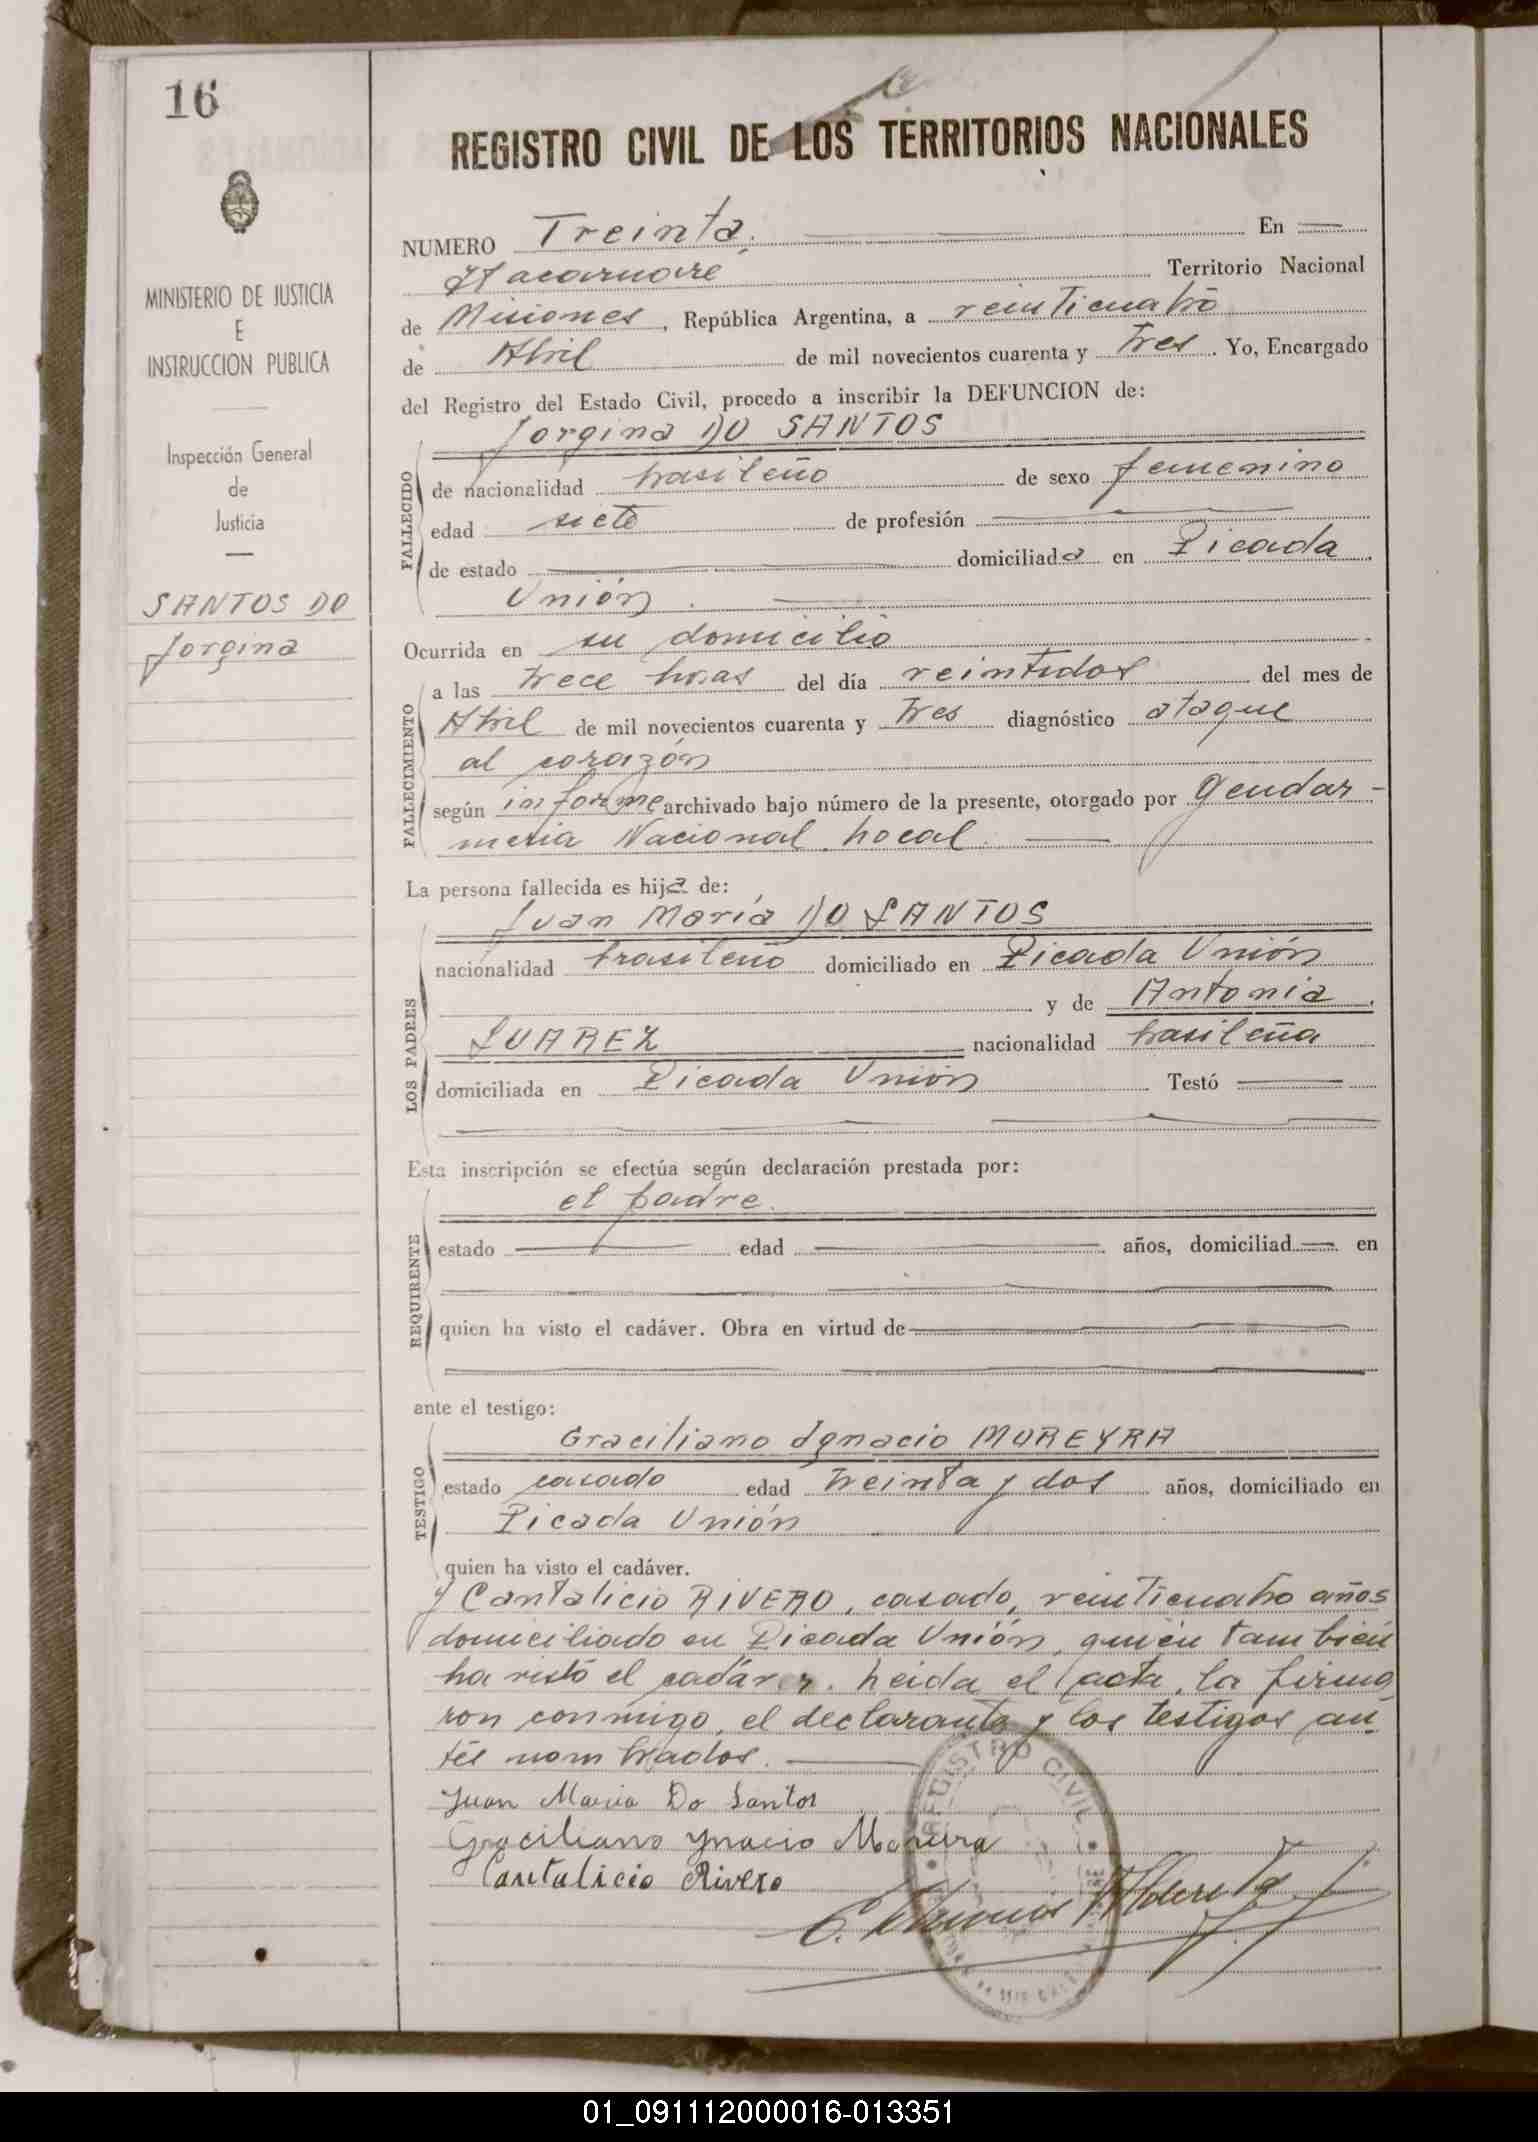 16
MINISTERIO DE JUSTICIA
E
INSTRUCCION PUBLICA
Inspección General
de
Justicia
SANTOS DO
Jorgina
REGISTRO CIVIL DE LOS TERRITORIOS NACIONALES
NUMERO Treinta. En
Itacaruaré Territorio Nacional
de Misiones, República Argentina, a veinticuatro
de Abril de mil novecientos cuarenta y tres. Yo, Encargado
del Registro del Estado Civil, procedo a inscribir la DEFUNCION de:
Jorgina DO SANTOS
FALLECIDO
de nacionalidad brasileño de sexo femenino
edad siete de profesión
de estado domiciliada en Picada
Unión.
Ocurrida en su domicilio
FALLECIMIENTO
a las trece horas del día veintidos del mes de
Abril de mil novecientos cuarenta y tres diagnóstico ataque
al corazón
según informe archivado bajo número de la presente, otorgado por Gendar-
mería Nacional Local.
La persona fallecida es hija de:
LOS PADRES
Juan María DO SANTOS
nacionalidad brasileño domiciliado en Picada Unión
y de Antonia
SUAREZ nacionalidad brasileña
domiciliada en Picada Unión Testó
Esta inscripción se efectúa según declaración prestada por:
REQUIRENTE
el padre.
estado edad años, domiciliad en
quien ha visto el cadáver. Obra en virtud de
ante el testigo:
TESTIGO
Graciliano Ignacio MOREYRA
estado casado edad treinta y dos años, domiciliado en
Picada Unión
quien ha visto el cadáver.
y Cantalicio RIVERO, casado, veinticuatro años
domiciliado en Picada Unión, quien tambien
ha visto el cadáver. Leida el acta, la firma
ron conmigo, el declarante y los testigos an-
tes nombrados.
Juan Maria Do Santos
Graciliano Ynacio Moreira
Cantalicio Rivero
REGISTRO CIVIL
01_091112000016-013351